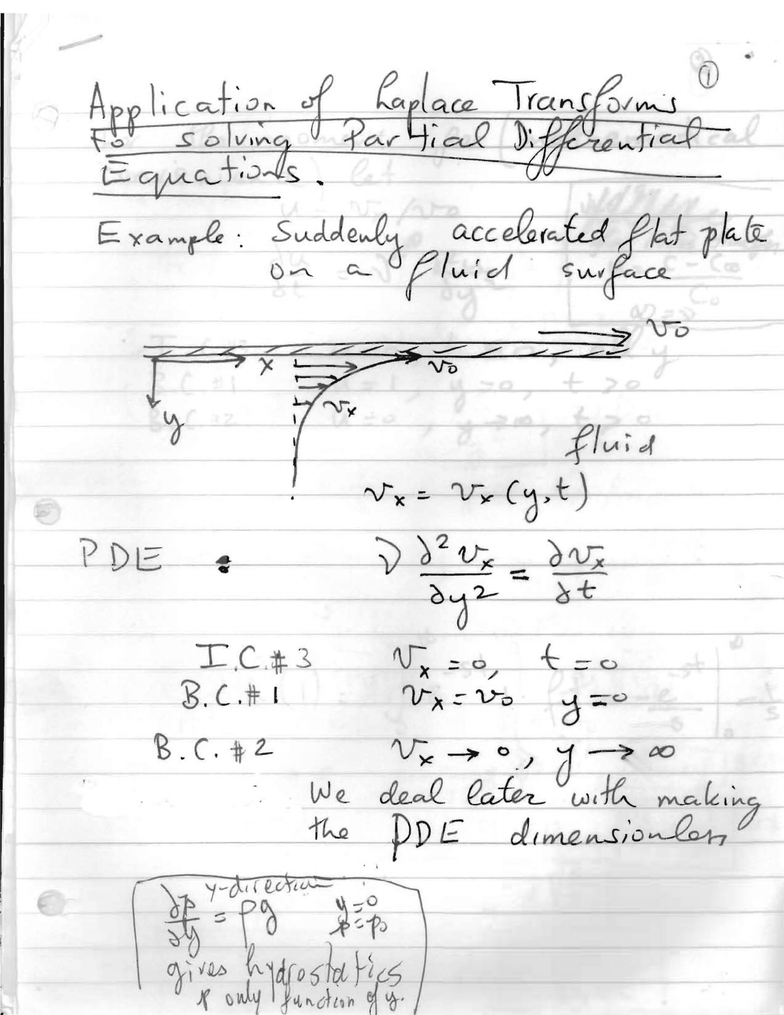 ①
Application of Laplace Transforms
to solving Partial Differential
Equations.
Example: Suddenly accelerated flat plate
on a fluid surface
v₀
x
v₀
y
vₓ
fluid
vₓ = vₓ (y,t)
PDE : ν ∂²vₓ/∂y² = ∂vₓ/∂t
I.C.#3 vₓ = 0, t = 0
B.C.#1 vₓ = v₀ y = 0
B.C.#2 vₓ → 0, y → ∞
We deal later with making
the PDE dimensionless
y-direction
∂p/∂y = ρg y=0
p=p₀
gives hydrostatics
p only function of y.